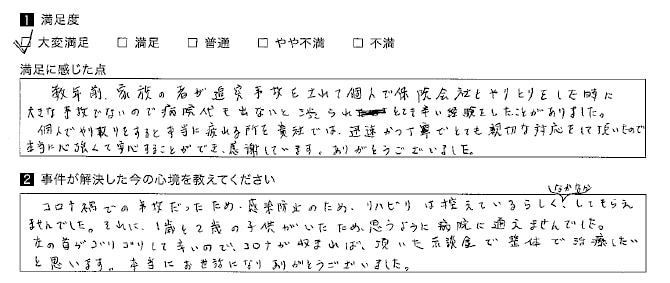 1 満足度
☑ 大変満足 □ 満足 □ 普通 □ やや不満 □ 不満
満足に感じた点
数年前、家族の者が追突事故をされて個人で保険会社とやりとりをした時に
大きな事故でないので病院代も出ないと渋られとても辛い経験をしたことがありました。
個人でやり取りをすると本当に疲れる所を貴社では、迅速かつ丁寧でとても親切な対応をして頂いたので
本当に心強くて安心することができ、感謝しています。ありがとうございました。
2 事件が解決した今の心境を教えてください
コロナ禍での事故だったため、感染防止のため、リハビリは控えているらしくなかなかしてもらえ
ませんでした。それに、1歳と2歳の子供がいたため、思うように病院に通えませんでした。
左の首がゴリゴリして辛いので、コロナが収まれば、頂いた示談金で整体で治療したい
と思います。本当にお世話になりありがとうございました。